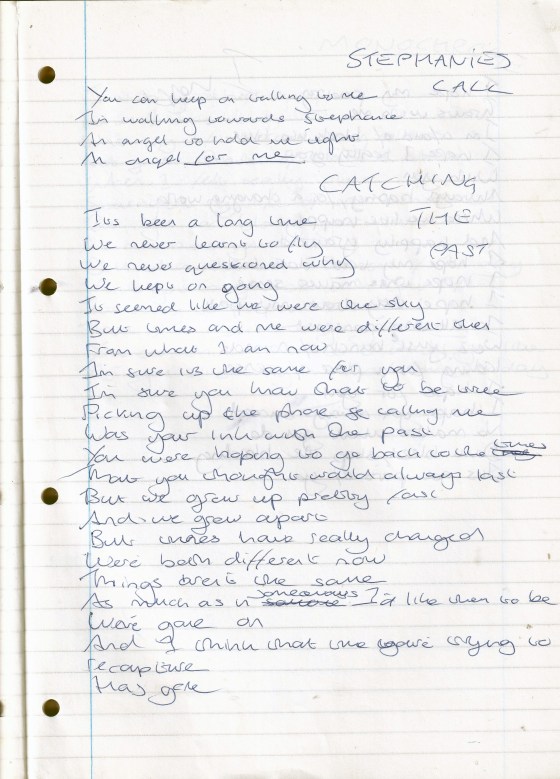 STEPHANIES
CALL
You can keep on talking to me
I'm walking towards Stephanie
An angel to hold me
An angel for me
CATCHING
THE
PAST
It's been a long time
We never learnt to fly
We never questioned why
We kept on going
It seemed like we were the sky
But times and me were different then
From what I am now
I'm sure it's the same for you
I'm sure you know that to be true
Picking up the phone & calling me
Was your link with the past
You were hoping to go back to the times
That you thought would always last
But we grew up pretty fast
And we grew apart
But times have really changed
We're both different now
Things aren't the same
As much as in someways I'd like them to be
We've gone on
And I think what you're trying to
recapture
Has gone